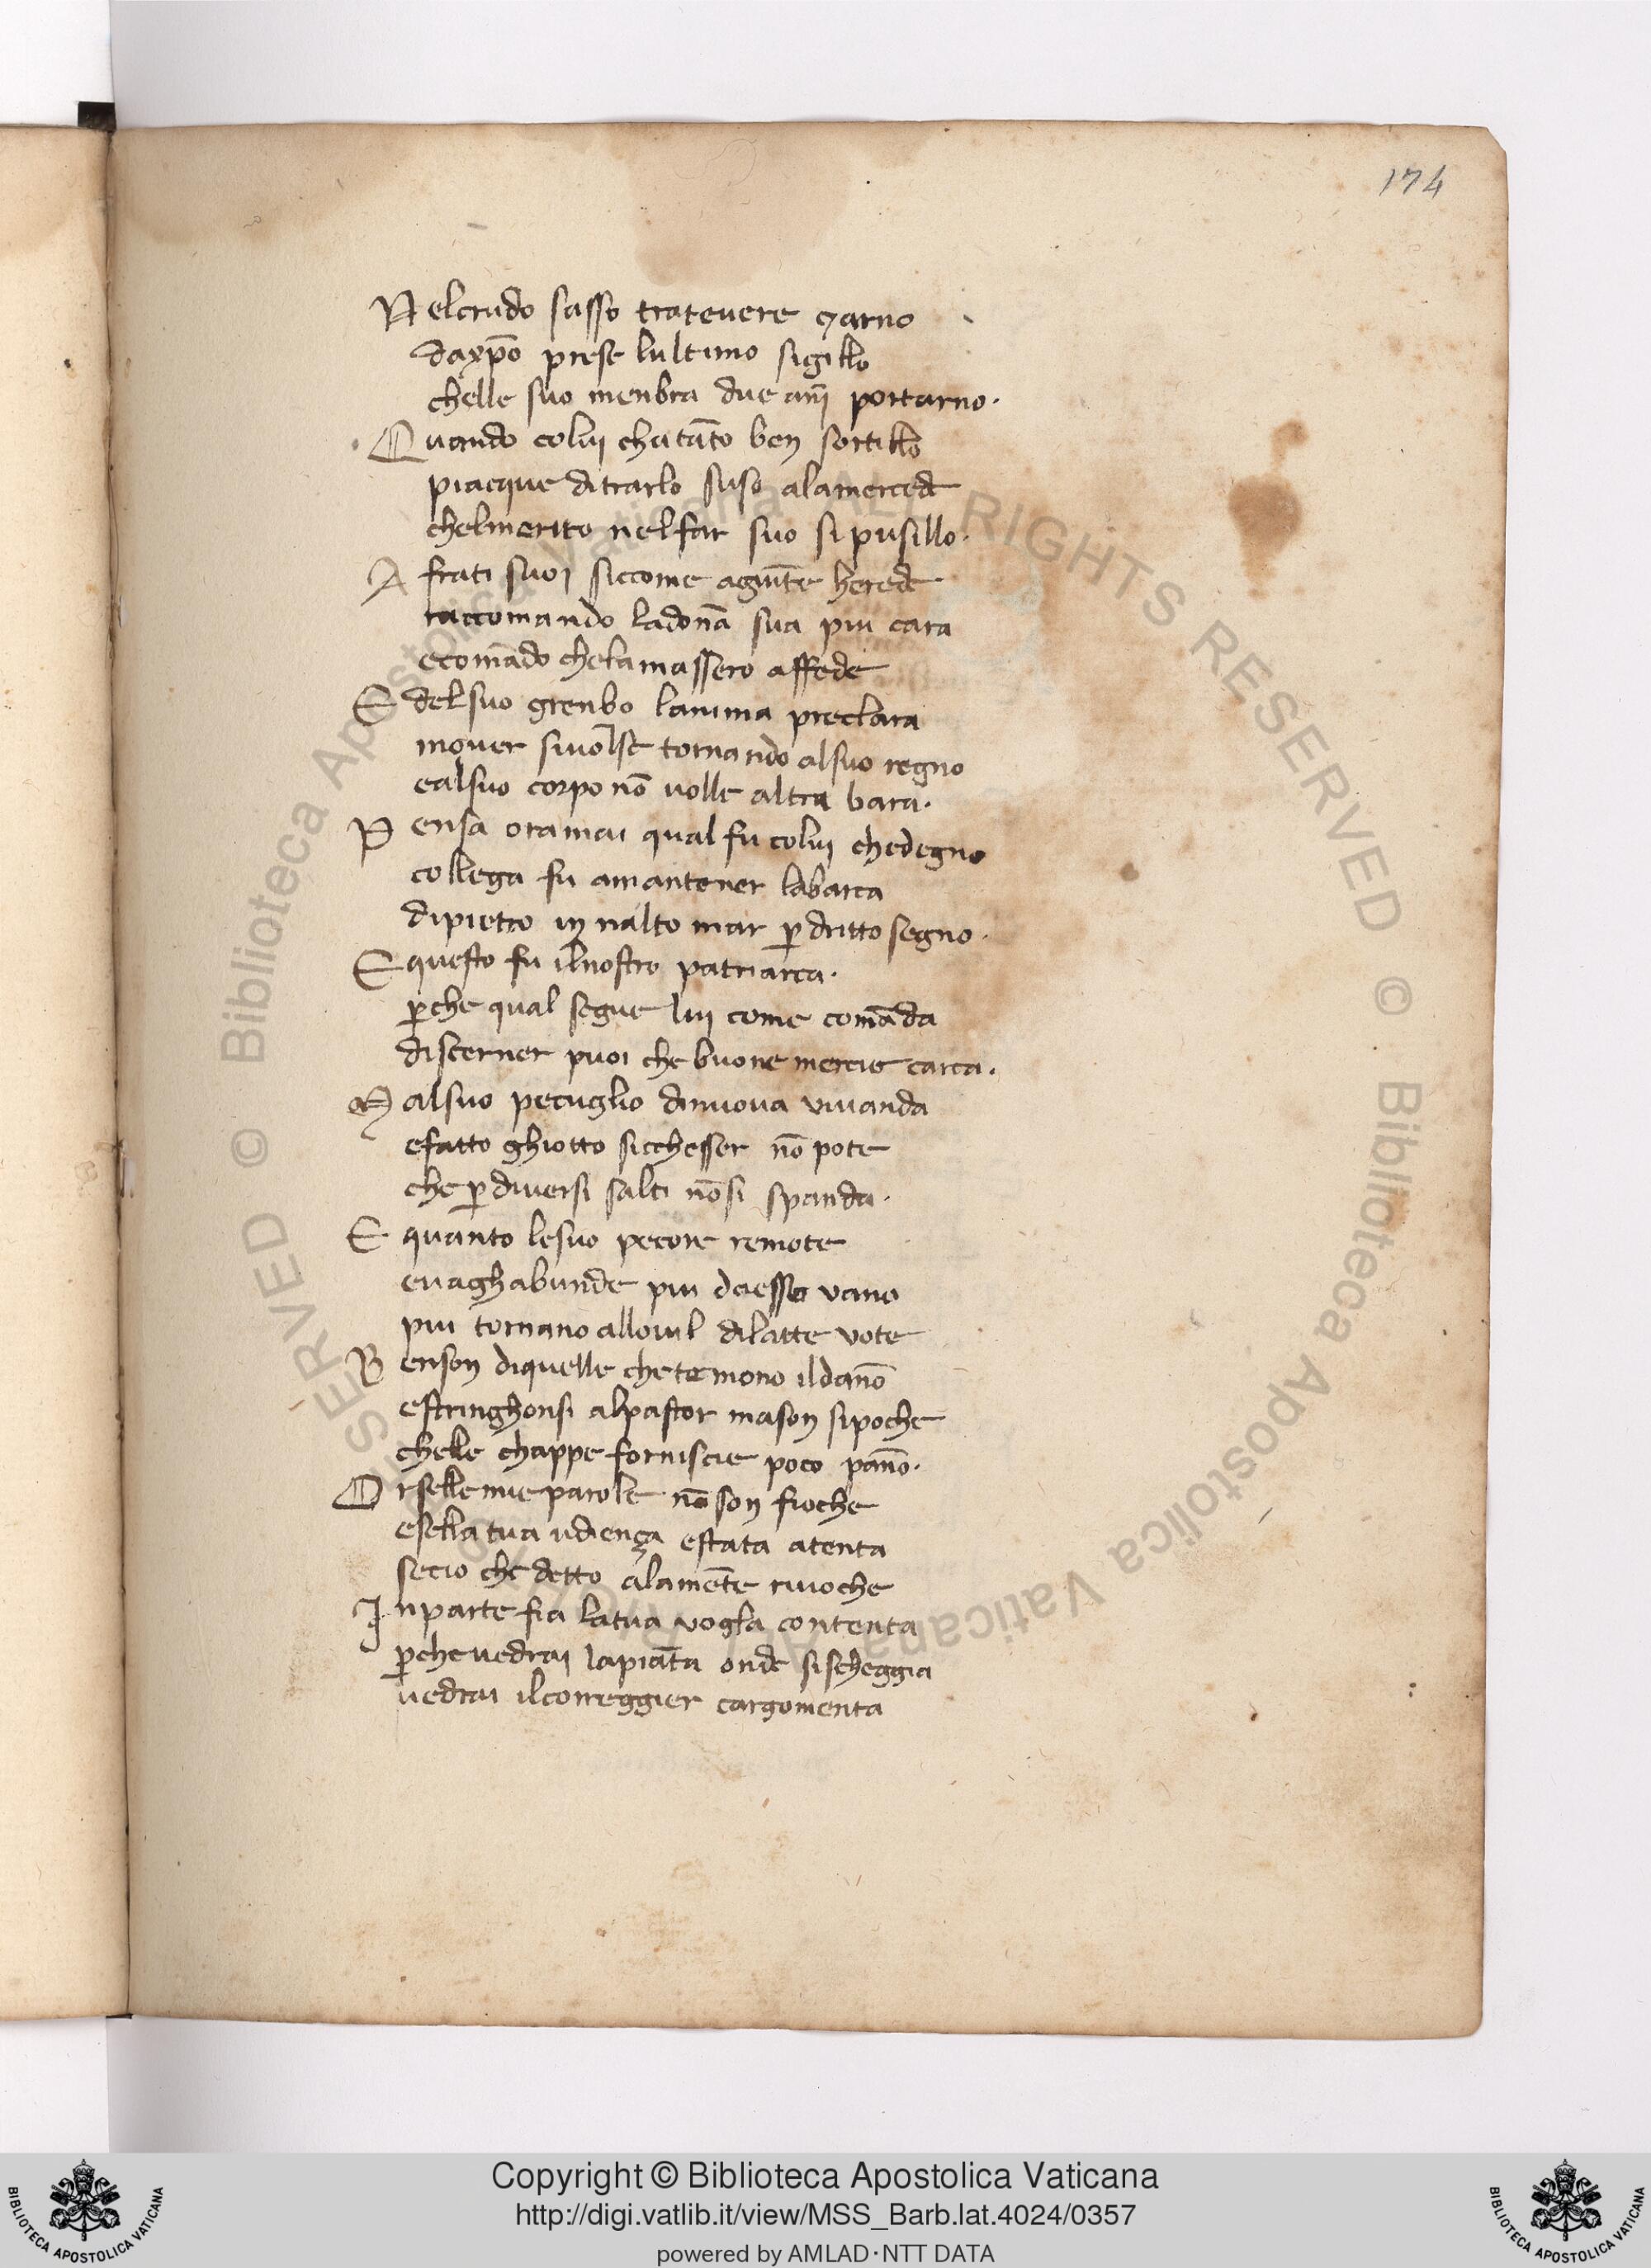 174
Nelcrudo sasso tratevere ⁊arno
daxp̄o prese lultimo sigillo
chelle suo menbra due an̄i portarno.
Quando colui chatāto ben sortillo
piacque ditrarlo suso alamercede
chelmerito nelfar suo si pusillo.
A frati suoi siccome agiuſte herede
raccomando ladon̄a sua piu cara
ecomādo chelamassero affede
E delsuo grenbo lanima preclara
mouer siuolse tornando alsuo regno
ealsuo corpo nō uolle altra bara.
Pensa oramai qual fu colui chedegno
collega fu amantener labarca
dipietro in nalto mar p̱ dritto segno.
Equesto fu ilnostro patriarca.
p̱che qual segue lui come comāda
discerner puoi che buone mercie carca.
Malsuo pecuglio dinuova vivanda
efatto ghiotto sicchesser nō pote
che p̱ diuersi salti nō si spanda.
E quanto lesuo pecore remote
euaghabunde piu daesso vano
piu tornano allouil dilatte vote
Benson diquelle chetemono ildan̄o
estringhonsi alpastor mason sipoche
chelle chappe forniscie poco pan̄o.
Orselle mie parole nō son fioche
esella tua udiença estata atenta
secio che detto alamēte riuoche
Inparte fia latua vogla contenta
p̱che uedrai lapiāta onde sischeggia
uedrai ilcorreggier cargomenta
© Biblioteca Apostolica Vaticana ALL RIGHTS RESERVED © Biblioteca Apostolica Vaticana ALL RIGHTS RESERVED
Copyright © Biblioteca Apostolica Vaticana
http://digi.vatlib.it/view/MSS_Barb.lat.4024/0357
powered by AMLAD·NTT DATA
BIBLIOTECA APOSTOLICA VATICANA
BIBLIOTECA APOSTOLICA VATICANA